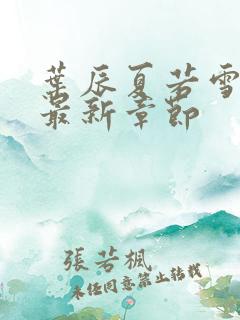 葉辰夏若雪
最新章節
張若楓
未经同意禁止转载